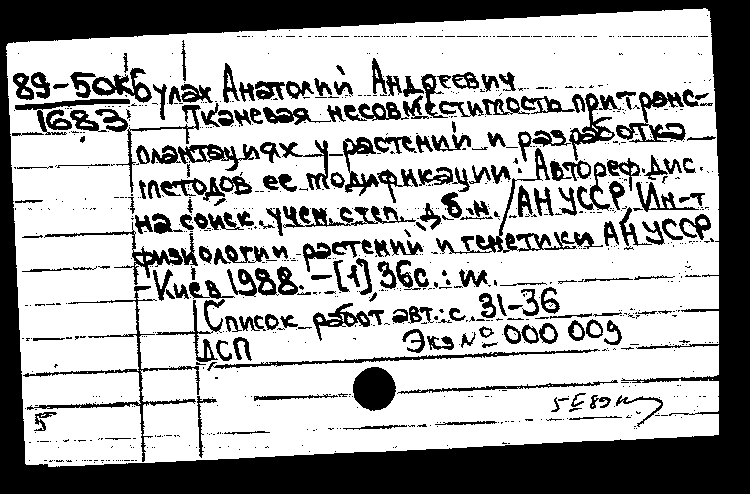 89-50к Булах Анатолий Андреевич
1683 Тканевая несовместимость при транс-
плантациях у растений и разработка
методов ее модификации: Автореф. дис.
на соиск. учен. степ. д.б.н. / АН УССР, Ин-т
физиологии растений и генетики АН УССР.
- Киев 1988. - [1], 36с. : ил.
Список работ авт.: с. 31-36
ДСП Экз № 000 009
5